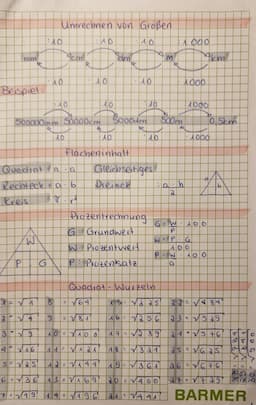 Umrechnen von Größen
:10 :10 :10 :1000
mm cm dm m km
·10 ·10 ·10 ·1000
Beispiel
:10 10 10 1000
500000mm 50000cm 5000dm 500m 0,5km
10 10 10 1000
Flächeninhalt
Quadrat = a · a Gleichseitiges
Rechteck = a · b Dreieck a · h
2
Kreis r²
Prozentrechnung
G Grundwert
W Prozentwert
P Prozentsatz
W
P G
G = W · 100
P
W = P · G
100
P = W · 100
G
Quadrat-Wurzeln
1 = √1 8 = √64 15 = √225 22 = √484
2 = √4 9 = √81 16 = √256 23 = √529
3 = √9 10 = √100 17 = √289 24 = √576
4 = √16 11 = √121 18 = √324 25 = √625
5 = √25 12 = √144 19 = √361 26 = √676
6 = √36 13 = √169 20 = √400 27 = √729
7 = √49 14 = √196 21 = √441
BARMER